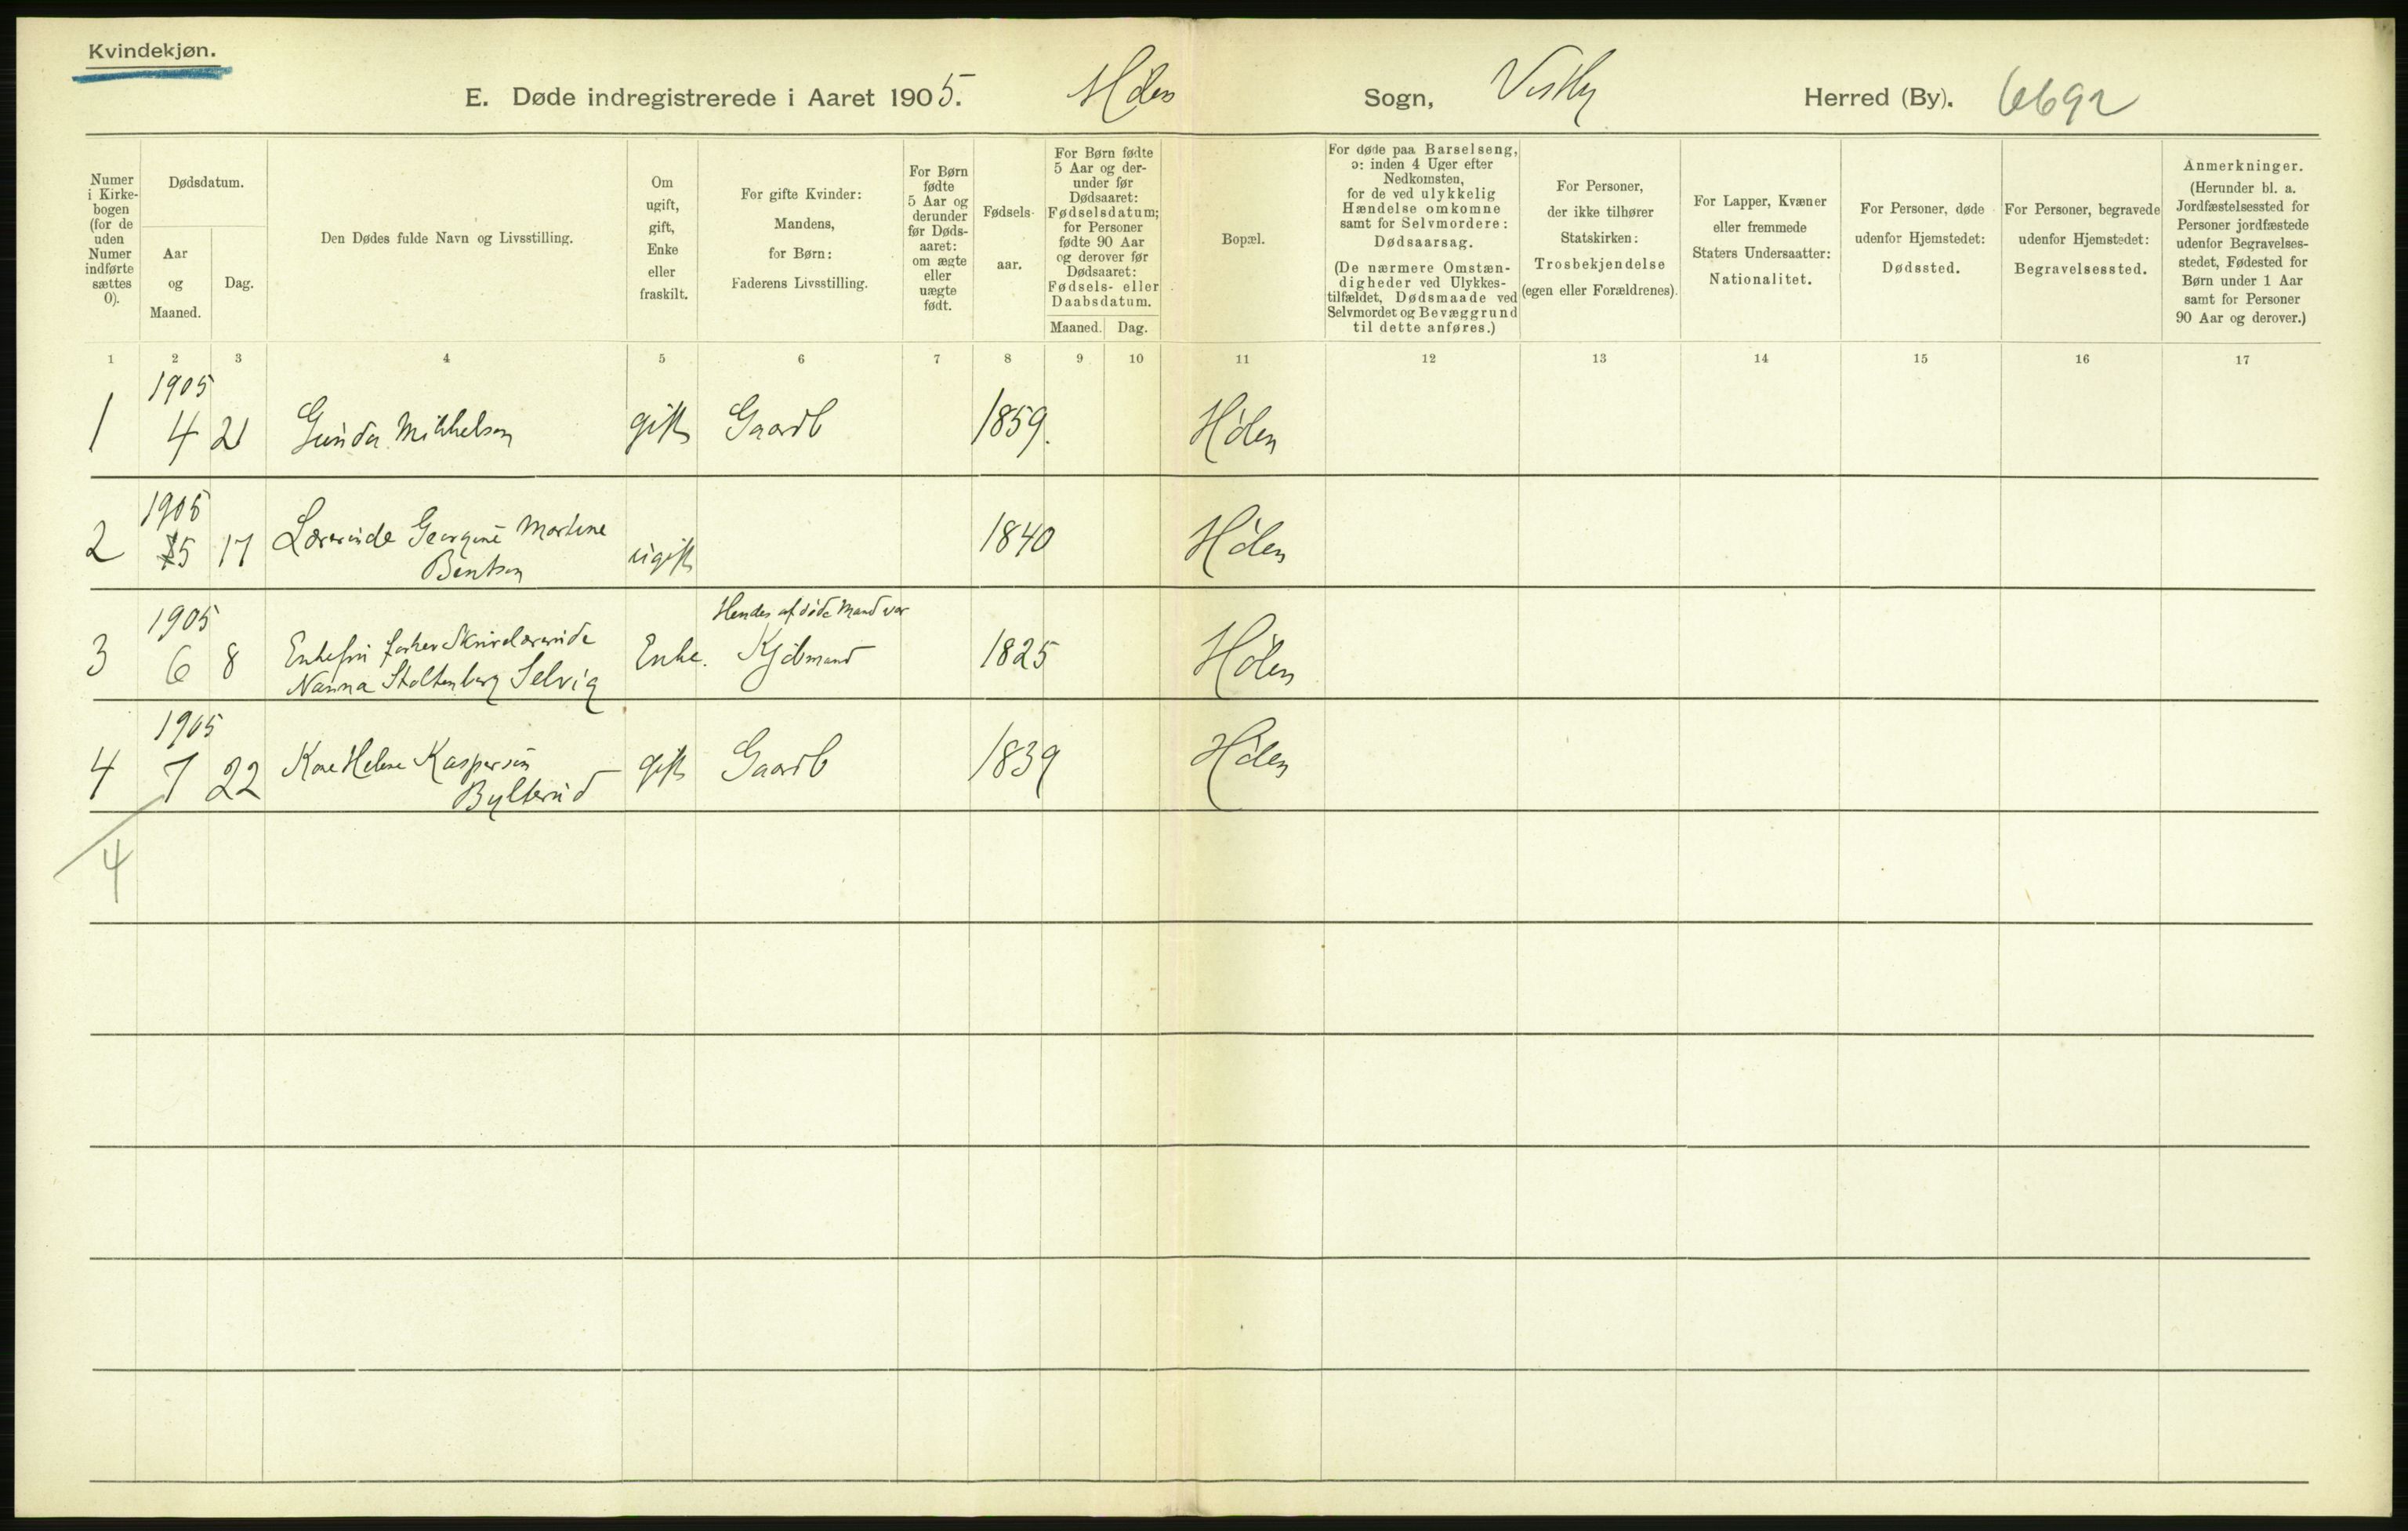 Kvindekjøn.
E. Døde indregistrerede i Aaret 1905. Hölen Sogn, Vestby Herred (By). 6692
Numer i Kirkebogen (for de uden Numer indførte sættes 0).
Dødsdatum.
Aar og Maaned.
Dag.
Den Dødes fulde Navn og Livsstilling.
Om ugift, gift, Enke eller fraskilt.
For gifte Kvinder: Mandens, for Børn: Faderens Livsstilling.
For Børn fødte 5 Aar og derunder før Dødsaaret: om ægte eller uægte født.
Fødselsaar.
For Børn fødte 5 Aar og derunder før Dødsaaret: Fødselsdatum; for Personer fødte 90 Aar og derover før Dødsaaret: Fødsels- eller Daabsdatum.
Maaned. Dag.
Bopæl.
For døde paa Barselseng, ɔ: inden 4 Uger efter Nedkomsten, for de ved ulykkelig Hændelse omkomne samt for Selvmordere: Dødsaarsag. (De nærmere Omstændigheder ved Ulykkestilfældet, Dødsmaade ved Selvmordet og Bevæggrund til dette anføres.)
For Personer, der ikke tilhører Statskirken: Trosbekjendelse (egen eller Forældrenes).
For Lapper, Kvæner eller fremmede Staters Undersaatter: Nationalitet.
For Personer, døde udenfor Hjemstedet: Dødssted.
For Personer, begravede udenfor Hjemstedet: Begravelsessted.
Anmerkninger. (Herunder bl. a. Jordfæstelsessted for Personer jordfæstede udenfor Begravelsesstedet, Fødested for Børn under 1 Aar samt for Personer 90 Aar og derover.)
1 2 3 4 5 6 7 8 9 10 11 12 13 14 15 16 17
1905
1 4 21 Gunda Mikkelsen gift Gaardb 1859. Hölen
1905
2 5 17 Lærerinde Georgine Martine ugift 1840 Hölen
Bentsen
1905 Hendes afdöde Mand var
3 6 8 Enkefru forhen Skolelærerinde Enke. Kjöbmand 1825 Hölen
Nanna Stoltenberg Selvig
1905
4 7 22 Karen Helene Kaspersen gift Gaardb 1839 Hölen
Bylterud
4